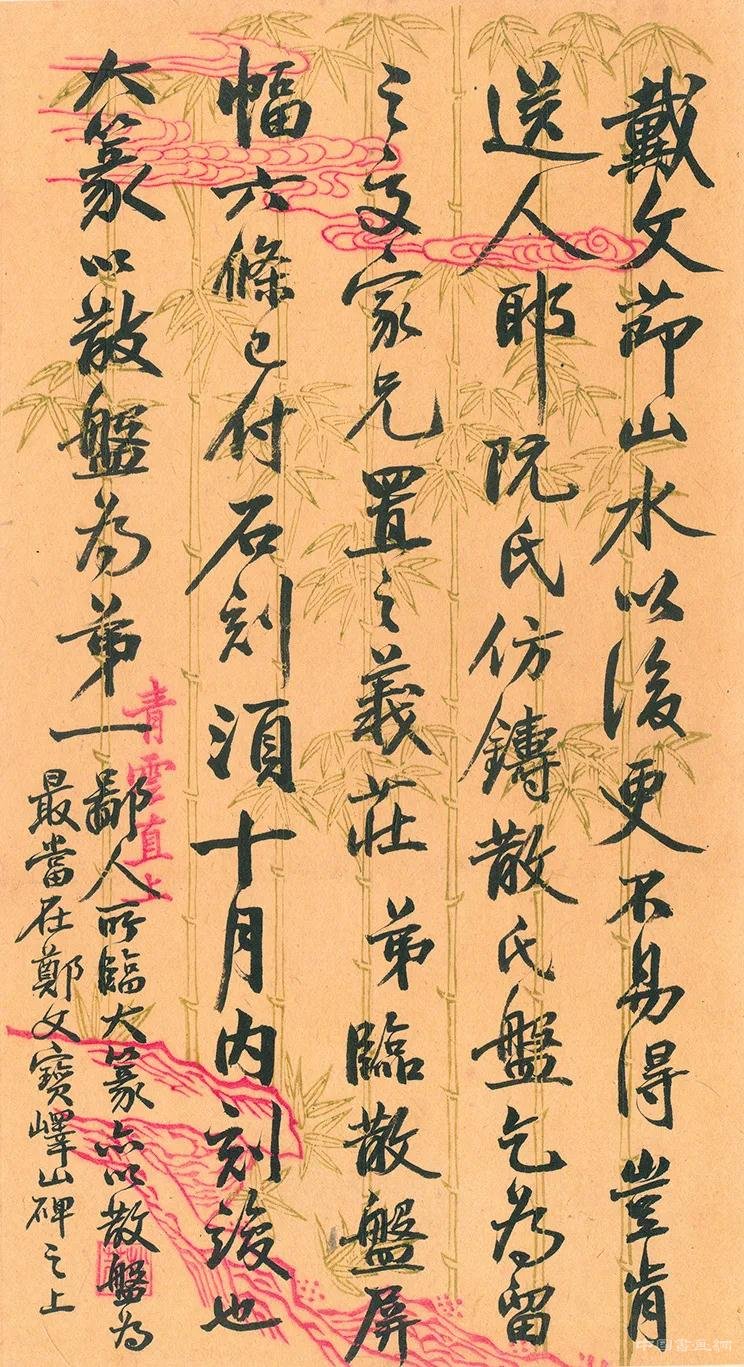 戴文節山水以後更不易得豈肯
送人耶阮氏仿鑄散氏盤乞為留
之交家兄置之義莊弟臨散盤屏
幅六條已付石刻須十月內刻竣也
大篆以散盤為弟一鄙人所臨大篆亦以散盤為
最當在鄭文寶嶧山碑之上
青雲直上
中国書画網